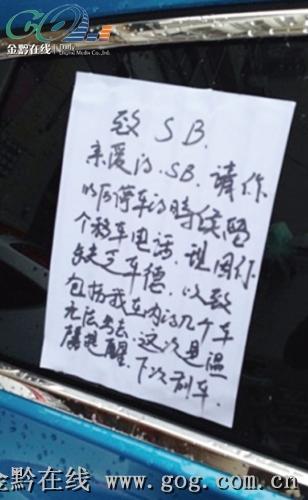 金黔在线
Daily
Digital Media Co.,Ltd.
致SB.
亲爱的.SB.请你
以后停车的时候留
个移车电话,现因你
缺乏车德.以致
包括我在内的几个车
无法出去.这次且温
馨提醒.下次刮车.
金黔在线 www.gog.com.cn